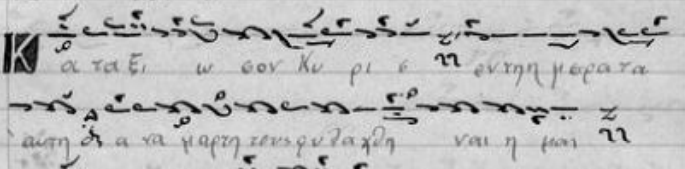 Κ α τα ξι ω σον Κυ ρι ε εν τη η μερα τα
αύτη α να μαρτη τους φυλαχθη ναι η μας